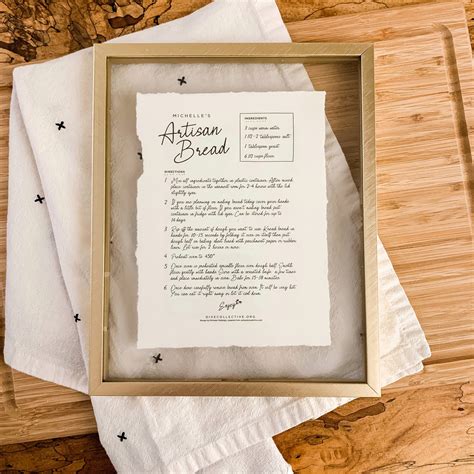 MICHELLE'S
Artisan
Bread
INGREDIENTS
3 cups warm water
1 1/2-2 tablespoons salt
1 tablespoon yeast
6 1/2 cups flour
DIRECTIONS
1 Mix all ingredients together in plastic container. After mixed
place container in the warmest area for 2-4 hours with the lid
slightly open.
2 If you are planning on eating bread today cover your hands
with a little bit of flour. If you aren't eating bread put
container in fridge with lid open. Can be stored for up to
14 days
3 Rip off the amount of dough you want to use. Knead bread in
hands for 10-15 seconds by folding it over in itself then put
dough ball on baking sheet back with parchment paper or rubber
liner. But let rise for 1 hour.
4 Preheat oven to 450°
5 Once oven is preheated sprinkle flour over dough ball. Smooth
flour gently with hands. Score with a serrated knife
place immediately in oven. Bake for 25-28 minutes
6 Once done carefully remove bread from oven. It will be very hot.
You can eat it right away or let it cool down.
Enjoy
DIXXCOLLECTIVE.ORG